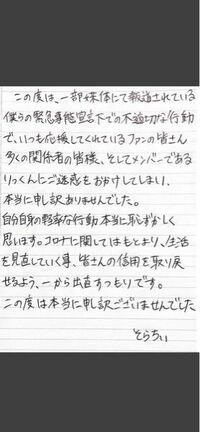 この度は、一部媒体にて報道されている
僕らの緊急事態宣言下での不適切な行動
で、いつも応援してくれているファンの皆さん
多くの関係者の皆様、そしてメンバーである
りっくんにご迷惑をおかけしてしまい、
本当に申し訳ありませんでした。
自分自身の軽率な行動本当に恥ずかしく
思います。コロナに関してはもとより、生活
を見直していく事、皆さんの信用を取り戻
せるよう、一から出直すつもりです。
この度は本当に申し訳ございませんでした
そらちぃ